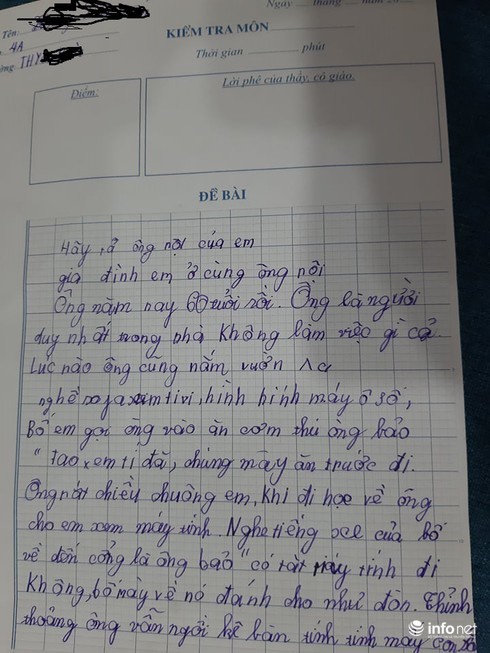 Ngày tháng năm 20
Tên
4A
KIỂM TRA MÔN
ờng THY
Thời gian phút
Điểm:
Lời phê của thầy, cô giáo.
ĐỀ BÀI
Hãy tả ông nội của em
gia đình em ở cùng ông nội
Ông năm nay 60 tuổi rồi. Ông là người
duy nhất trong nhà không làm việc gì cả
Lúc nào ông cũng nằm vườn
xem tivi, hình hính máy
Bố em gọi ông vào ăn cơm thì ông bảo
"Tao xem tí đã, chúng mày ăn trước đi.
Ông rất chiều chuộng em, khi đi học về ông
cho em xem máy tính. Nghe tiếng xe của bố
về đến cổng là ông bảo "có tắt máy tính đi
không, bố mày về nó đánh cho như đòn. Thỉnh
thoảng ông vẫn ngồi kê bàn tính tính máy con
infonet